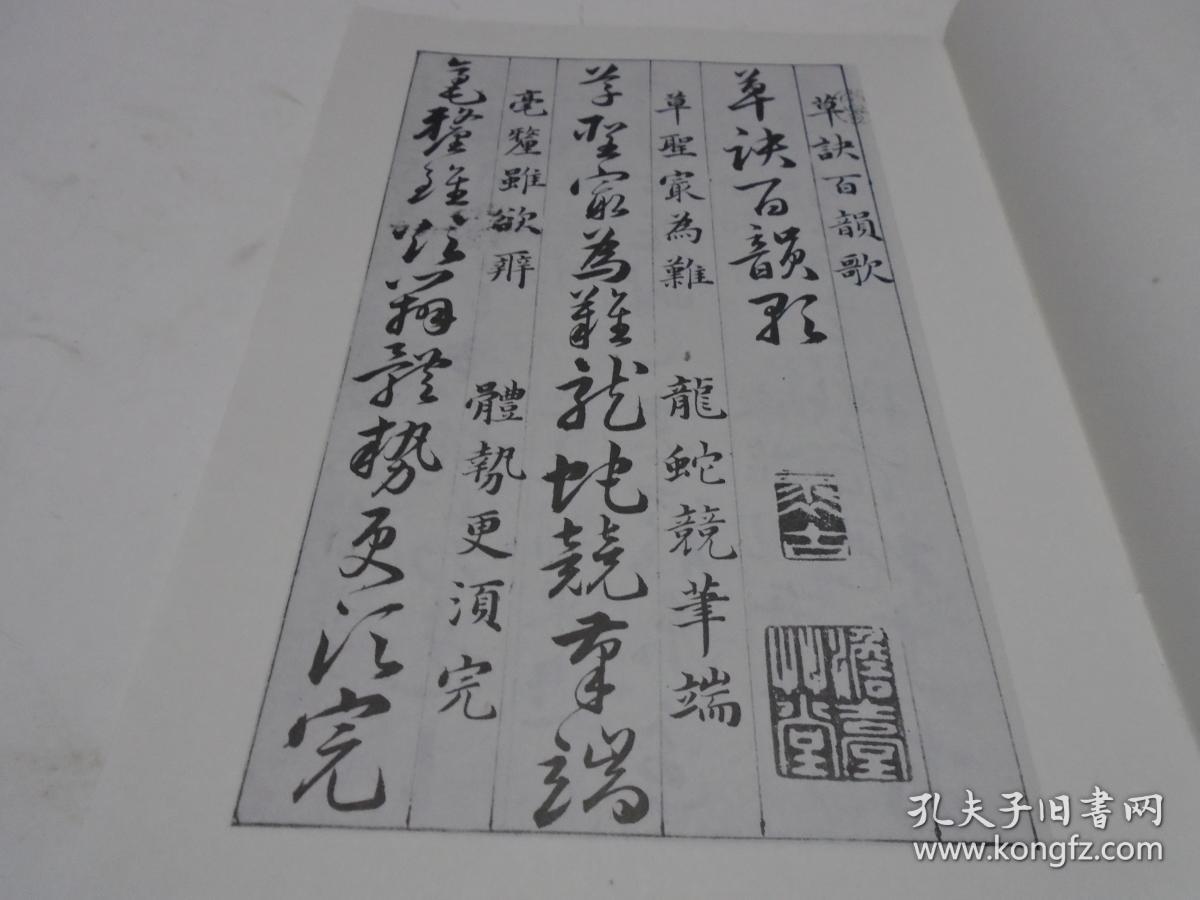 草訣百韻歌
草訣百韻歌
草聖㝡為難 龍蛇競筆端
草聖㝡為難龍蛇競筆端
毫釐雖欲辨 體勢更須完
毫釐雖欲辨體勢更須完
孔夫子旧书网
www.kongfz.com